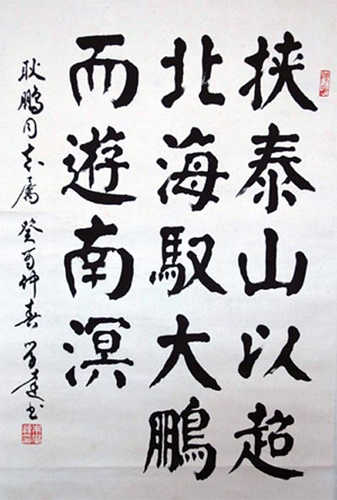 挟泰山以超
北海馭大鵬
而遊南溟
耿鵬同志属 癸酉仲春 書